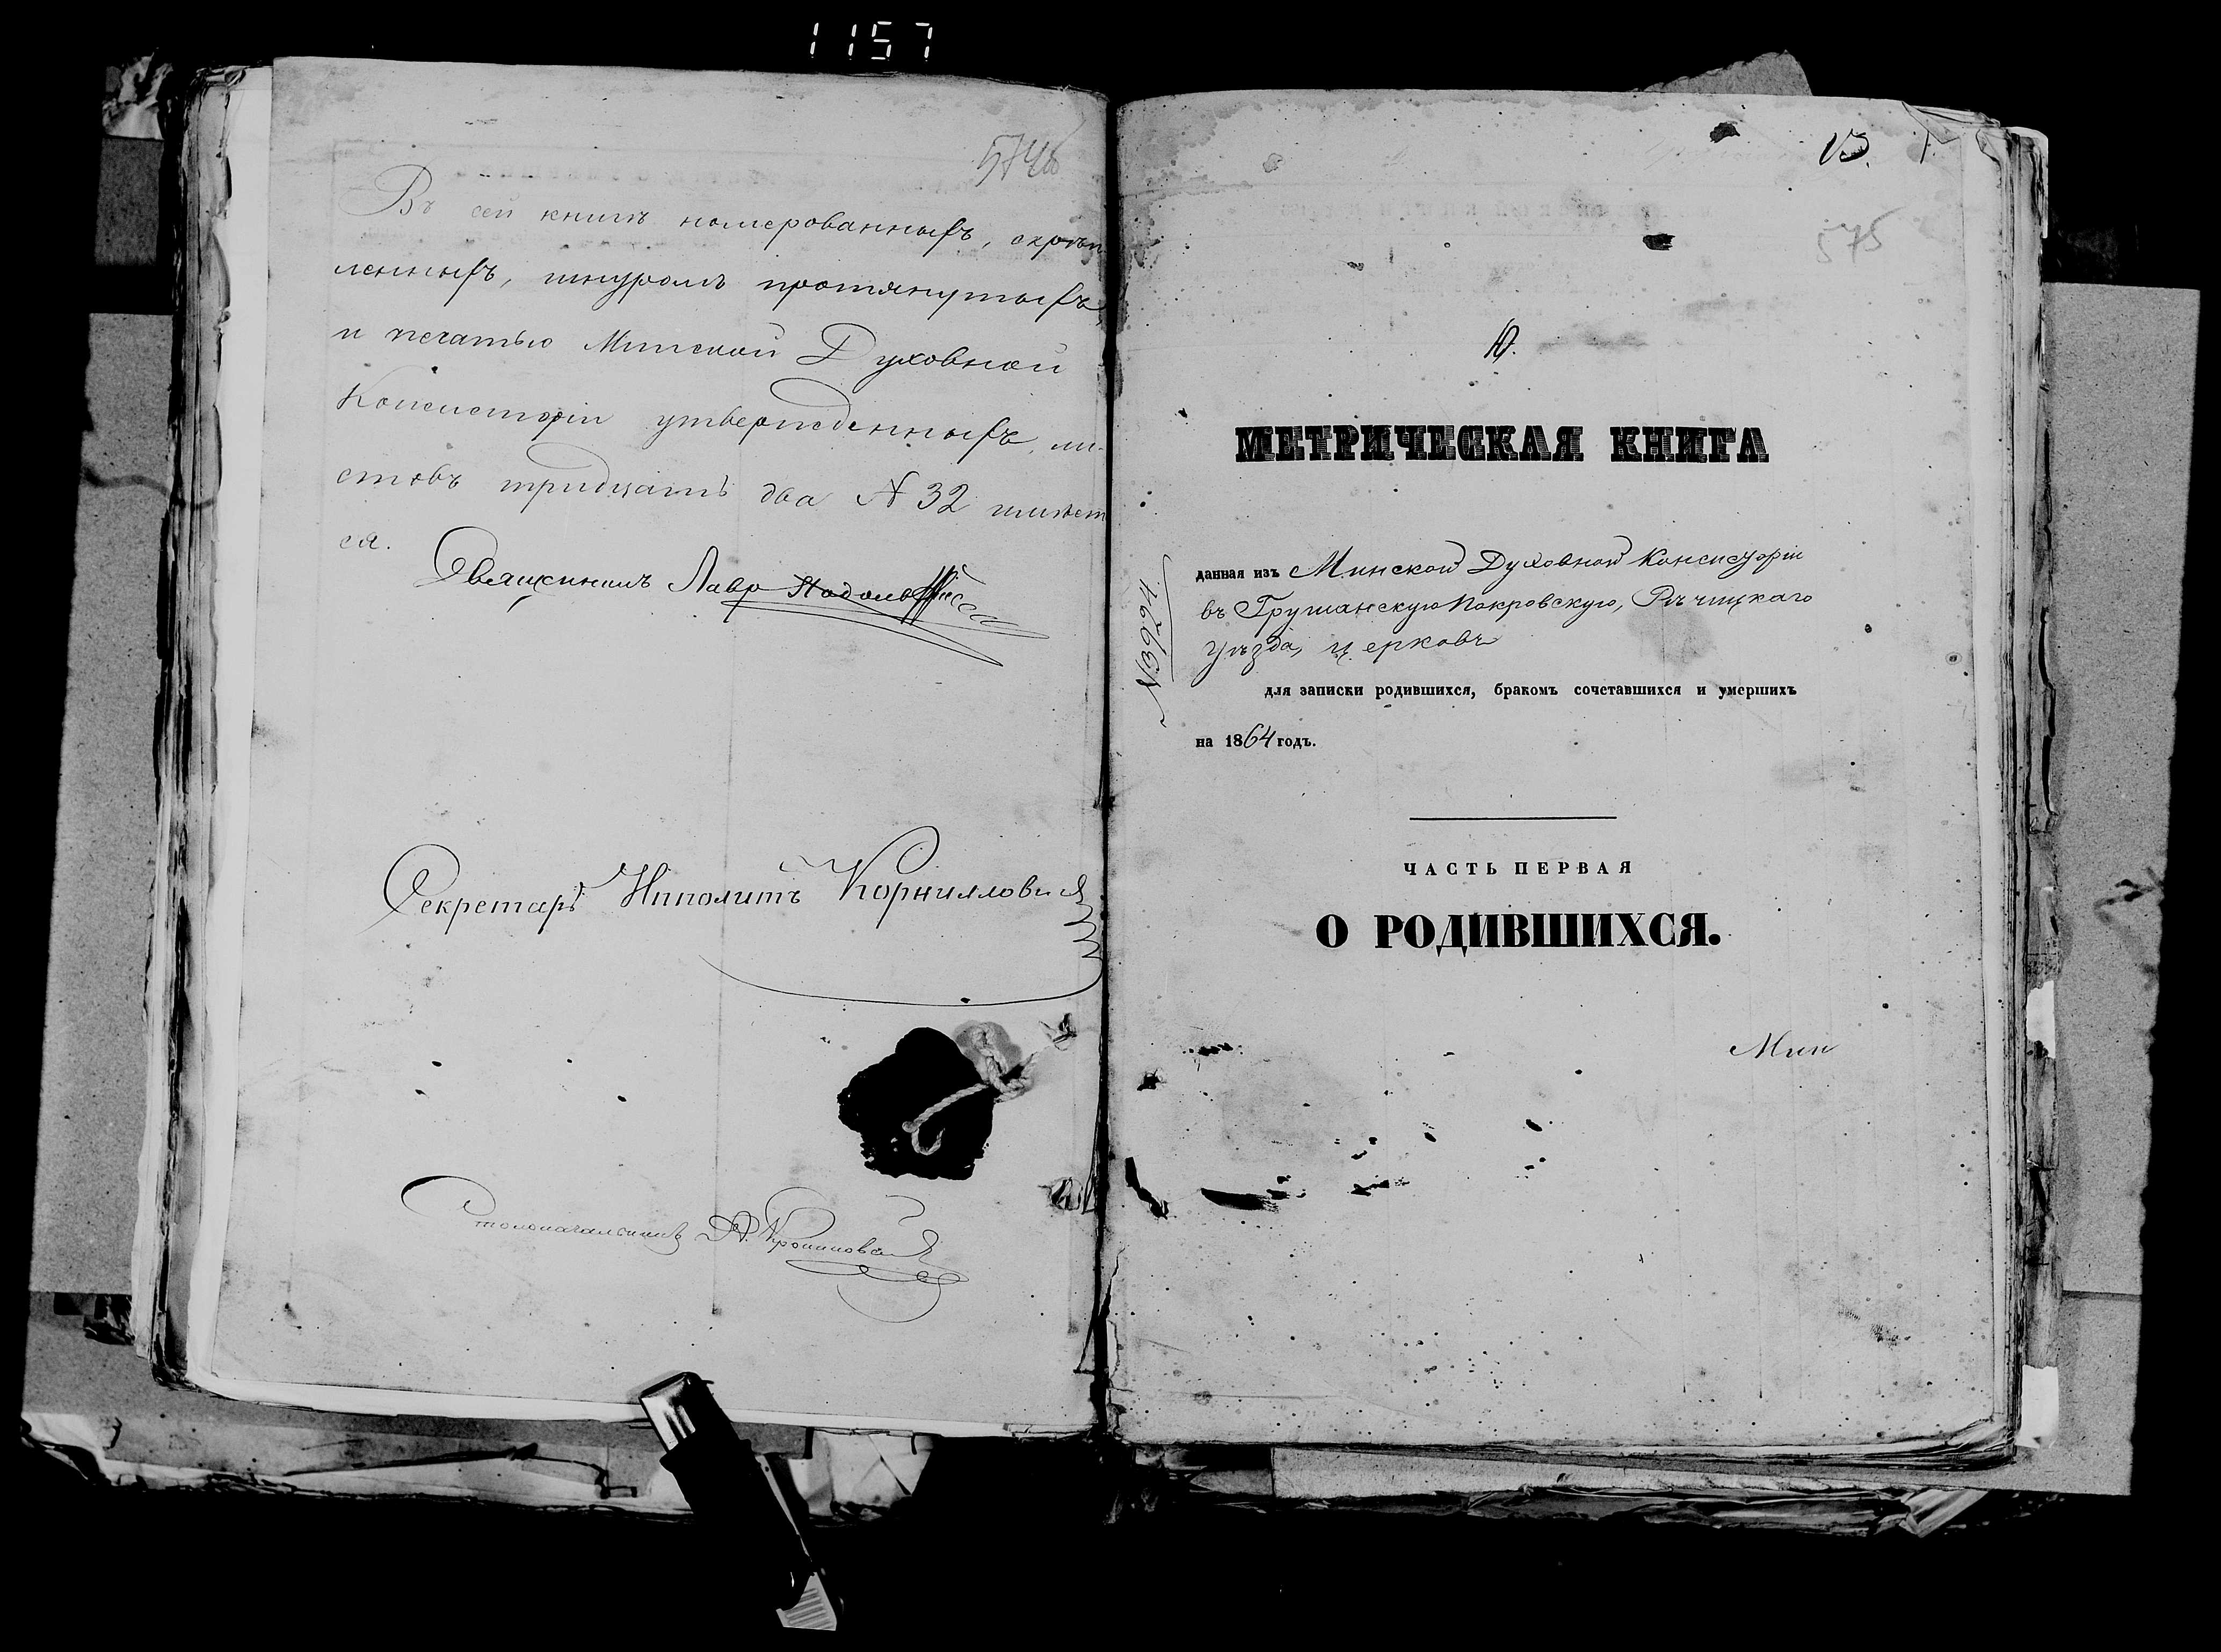 1157
574об
Въ сей книгѣ номерованныхъ, скрѣп
ленныхъ, шнуромъ протянутыхъ,
и печатью Минской Духовной
Консисторіи утвержденныхъ, ли-
стовъ тридцать два № 32 имѣет
ся.
Священникъ Лавр
Секретарь Ипполитъ Корниллович
Столоначальникъ
1.
575
МЕТРИЧЕСКАЯ КНИГА
данная изъ Минской Духовной Консисторіи
въ Грушанскую Покровскую, Рѣчицкаго
уѣзда, церковь
№3924.
для записки родившихся, бракомъ сочетавшихся и умершихъ
на 1864 годъ.
ЧАСТЬ ПЕРВАЯ
О РОДИВШИХСЯ.
Мин